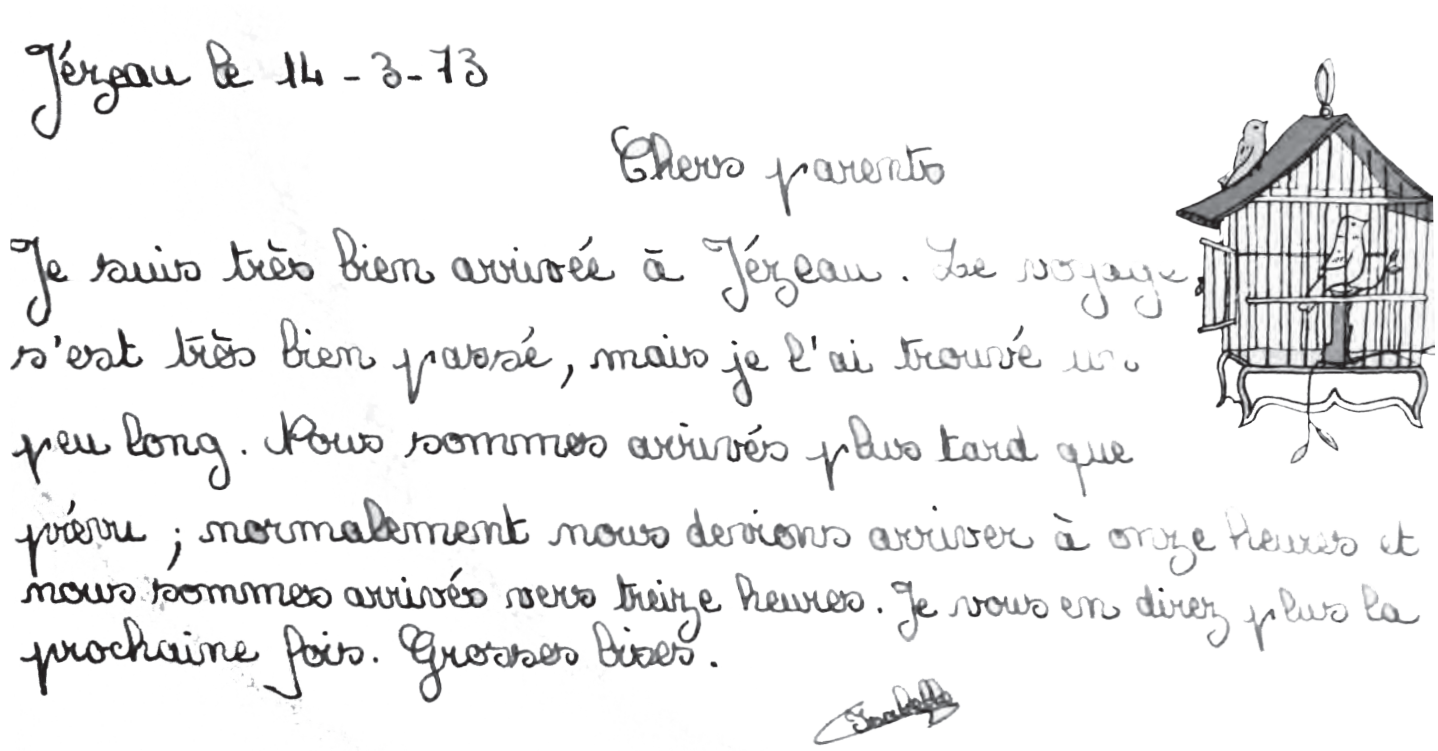 Jézeau le 14-3-73
Chers parents
Je suis très bien arrivée à Jézeau. Le voyage
s'est très bien passé, mais je l'ai trouvé un
peu long. Nous sommes arrivés plus tard que
prévu ; normalement nous devions arriver à onze heures et
nous sommes arrivés vers treize heures. Je vous en direz plus la
prochaine fois. Grosses bises.
Isabelle